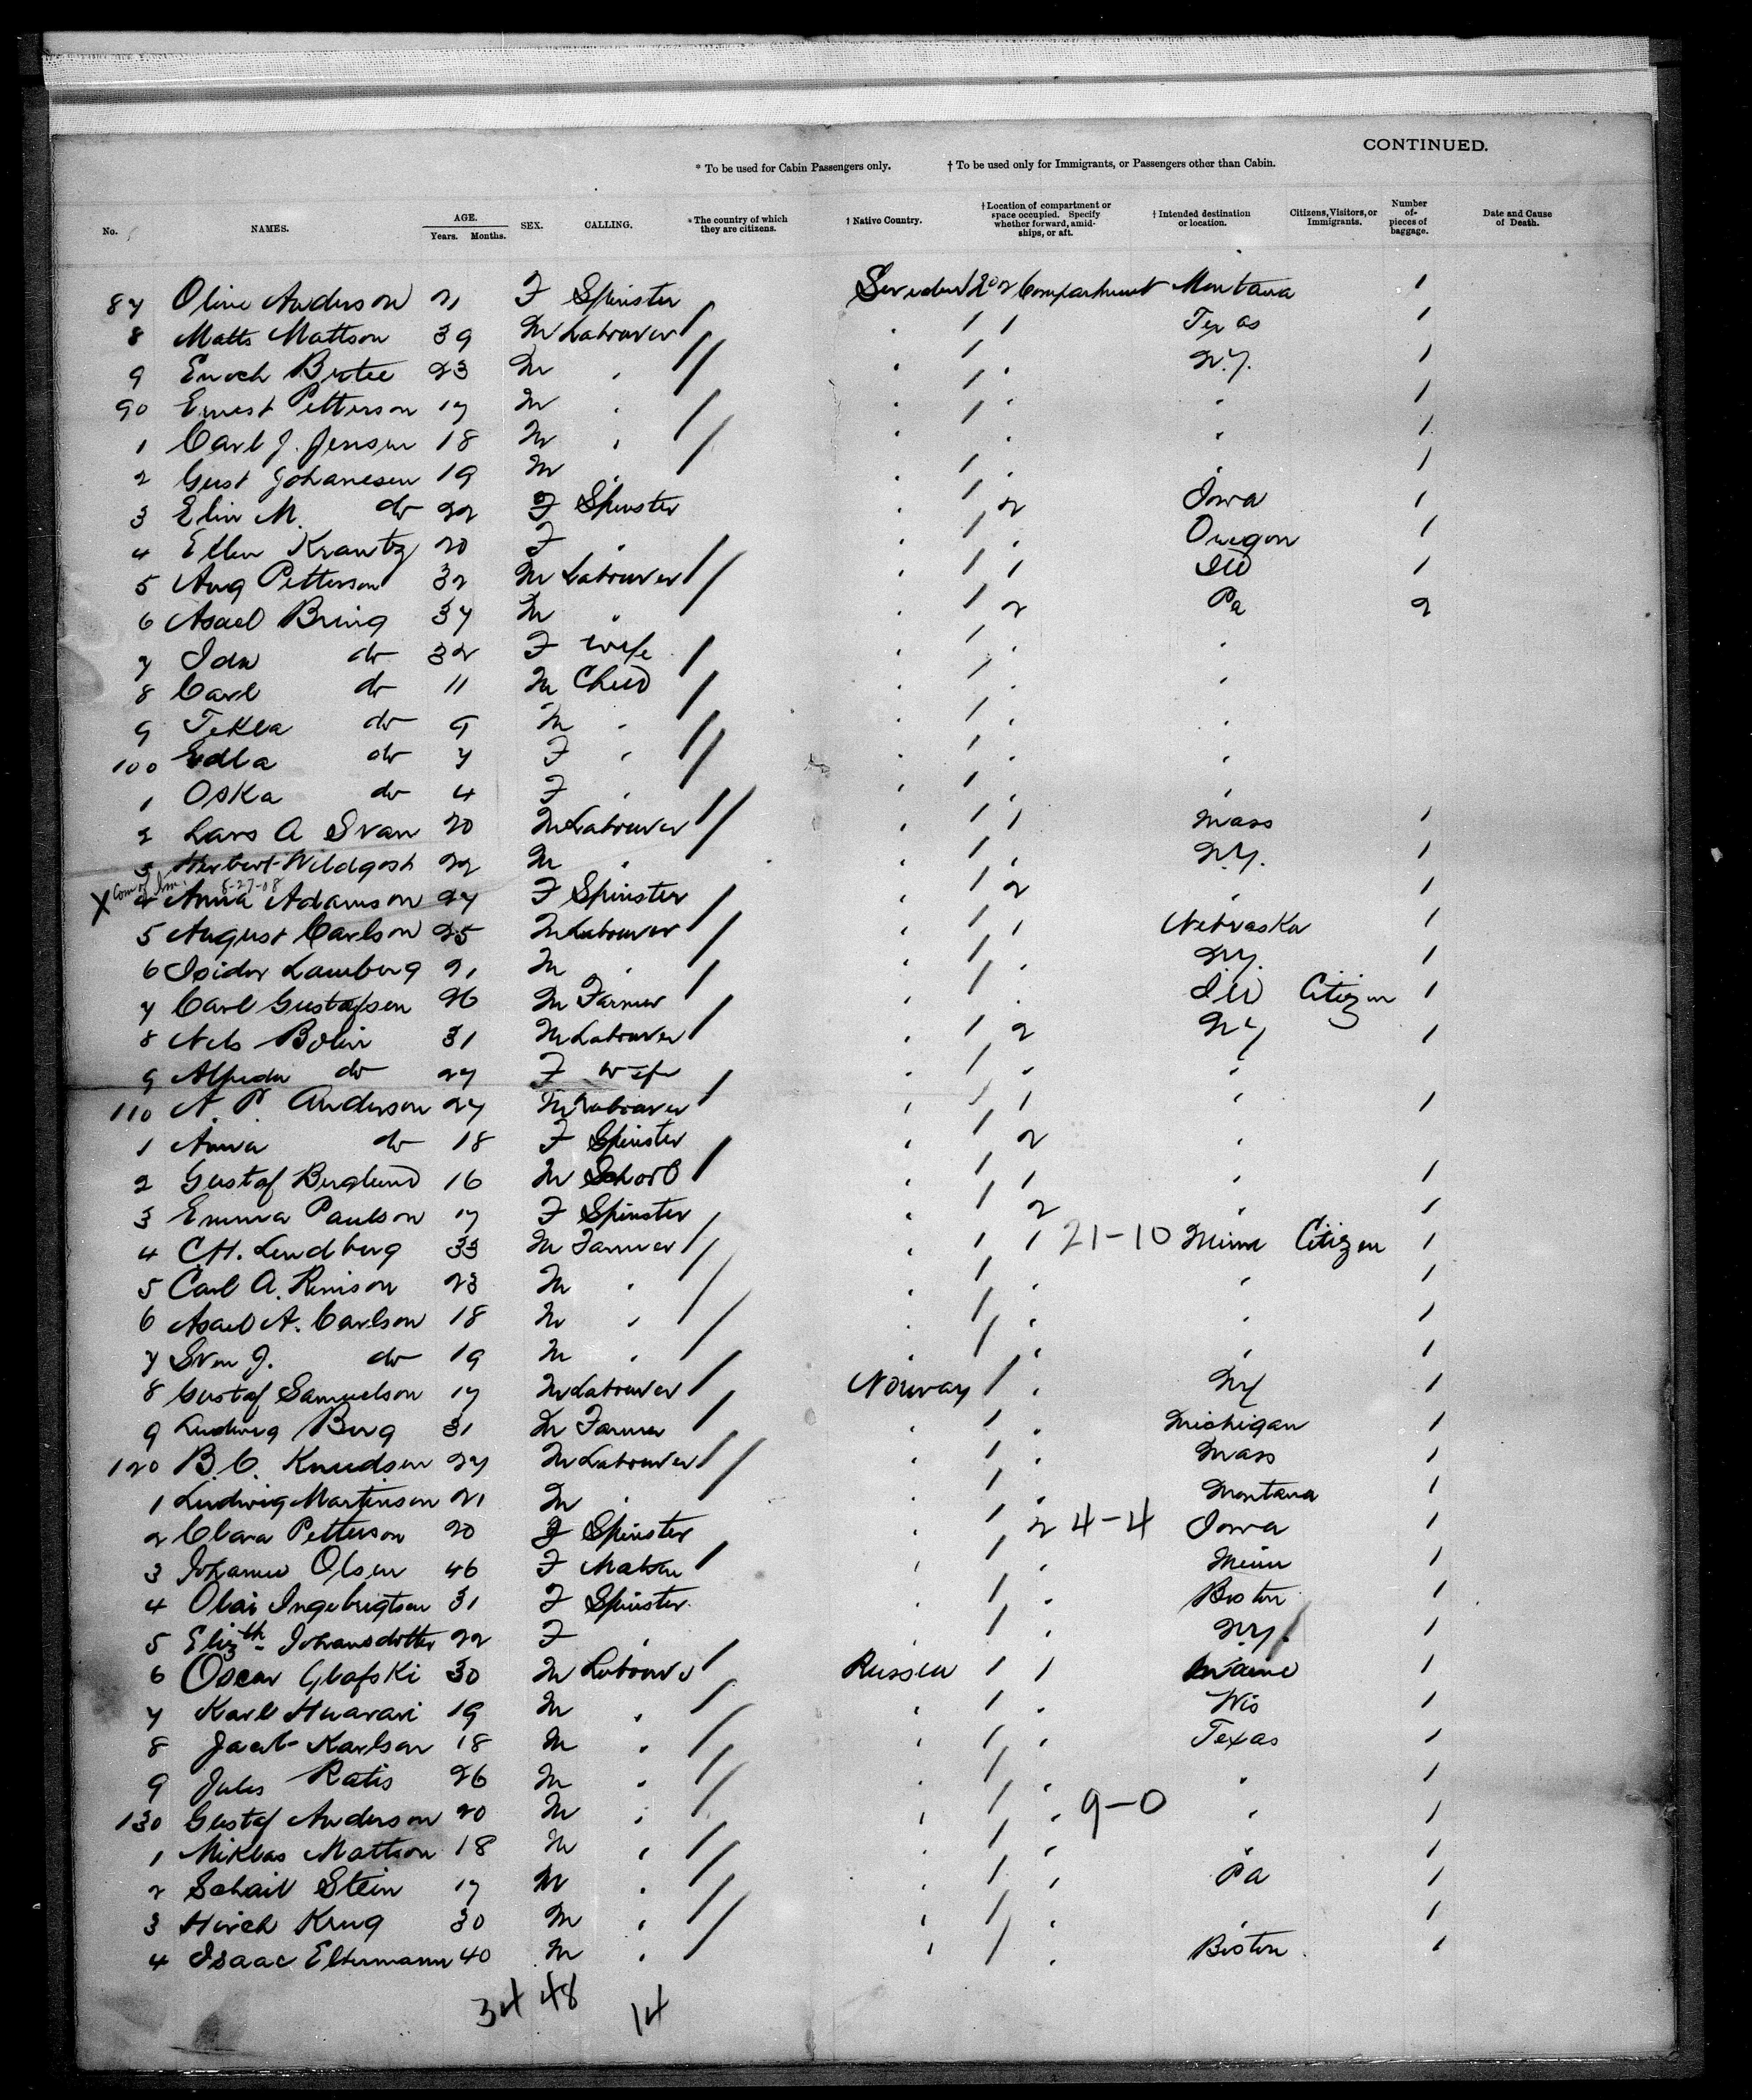 CONTINUED.
* To be used for Cabin Passengers only. † To be used only for Immigrants, or Passengers other than Cabin.
No. NAMES. AGE. Years. Months. SEX. CALLING. *The country of which they are citizens. † Native Country. †Location of compartment or space occupied. Specify whether forward, amidships, or aft. † Intended destination or location. Citizens, Visitors, or Immigrants. Number of pieces of baggage. Date and Cause of Death.
87 Oline Anderson 21 F Spinster Sweden 1 No 2 Compartment Montana 1
8 Matts Mattson 39 M Labourer / 1 1 Texas 1
9 Enoch 23 M " // 1 " N.Y. 1
90 Ernest Petterson 17 M " / 1 " " 1
1 Carl J. Jensen 18 M " / 1 " " 1
2 Gust Johanesen 19 M " 1 " " 1
3 Elin M. do 22 F Spinster 1 2 Iowa 1
4 Ellen Krantz 20 F " 1 " Oregon 1
5 Aug Petterson 32 M Labourer // 1 1 Ill 1
6 Axel Bring 37 M " 1 2 Pa 2
7 Ida do 32 F wife / 1 " "
8 Carl do 11 M Child / 1 " "
9 Tekla do 9 M " / 1 " "
100 Edla do 7 F " // 1 " "
1 Oska do 4 F " 1 " "
2 Lars A Svan 20 M Labourer // 1 1 Mass 1
3 Herbert Wildgosh 22 M " 1 " N.Y. 1
X Com of Im. 8-27-08
4 Anna Adamson 27 F Spinster / 1 2 " 1
5 August Carlson 25 M Labourer / 1 1 Nebraska 1
6 Isidor Lamberg 21 M " / 1 " N.Y. 1
7 Carl Gustafsen 26 M Farmer / 1 " Ill Citizen 1
8 Nels Bolin 31 M Labourer / 1 2 N.Y 1
9 Alfreda do 27 F wife 1 " "
110 A. P. Anderson 27 M Labourer / 1 1 " 1
1 Anna do 18 F Spinster 1 2 "
2 Gustaf Berglund 16 M School / 1 1 " 1
3 Emma Paulson 17 F Spinster 1 2 " 1
4 C.H. Lindberg 33 M Farmer // 1 1 21-10 Minn Citizen 1
5 Carl A. 23 M " / 1 " " 1
6 Axel A. Carlson 18 M " / 1 " " 1
7 Sven J. do 19 M " / 1 " " 1
8 Gustaf Samuelson 17 M Labourer / Norway 1 " NY 1
9 Ludwig Berg 31 M Farmer / 1 " Michigan 1
120 B.C. Knudsen 27 M Labourer // 1 " Mass 1
1 Ludwig Martinson 21 M " 1 " Montana 1
2 Clara Petterson 20 F Spinster 1 2 4-4 Iowa 1
3 Olsen 46 F Matron / 1 " Minn 1
4 Ingebrigtsen 31 F Spinster 1 " Boston 1
5 Elizth Johansdotter 22 F " 1 " N.Y. 1
6 Oscar 30 M Labourer / Russia 1 1 Maine 1
7 Karl 19 M " / 1 " Wis 1
8 Jacob Karlson 18 M " / 1 " Texas 1
9 Jules Ratis 26 M " / 1 " " 1
130 Gustaf Anderson 20 M " / 1 " 9-0 " 1
1 Niklas Mattson 18 M " // 1 " " 1
2 Stein 17 M " / 1 " Pa 1
3 Hirch Krug 30 M " / 1 " " 1
4 Isaac Eltermann 40 M " / 1 " Boston 1
34 48 14